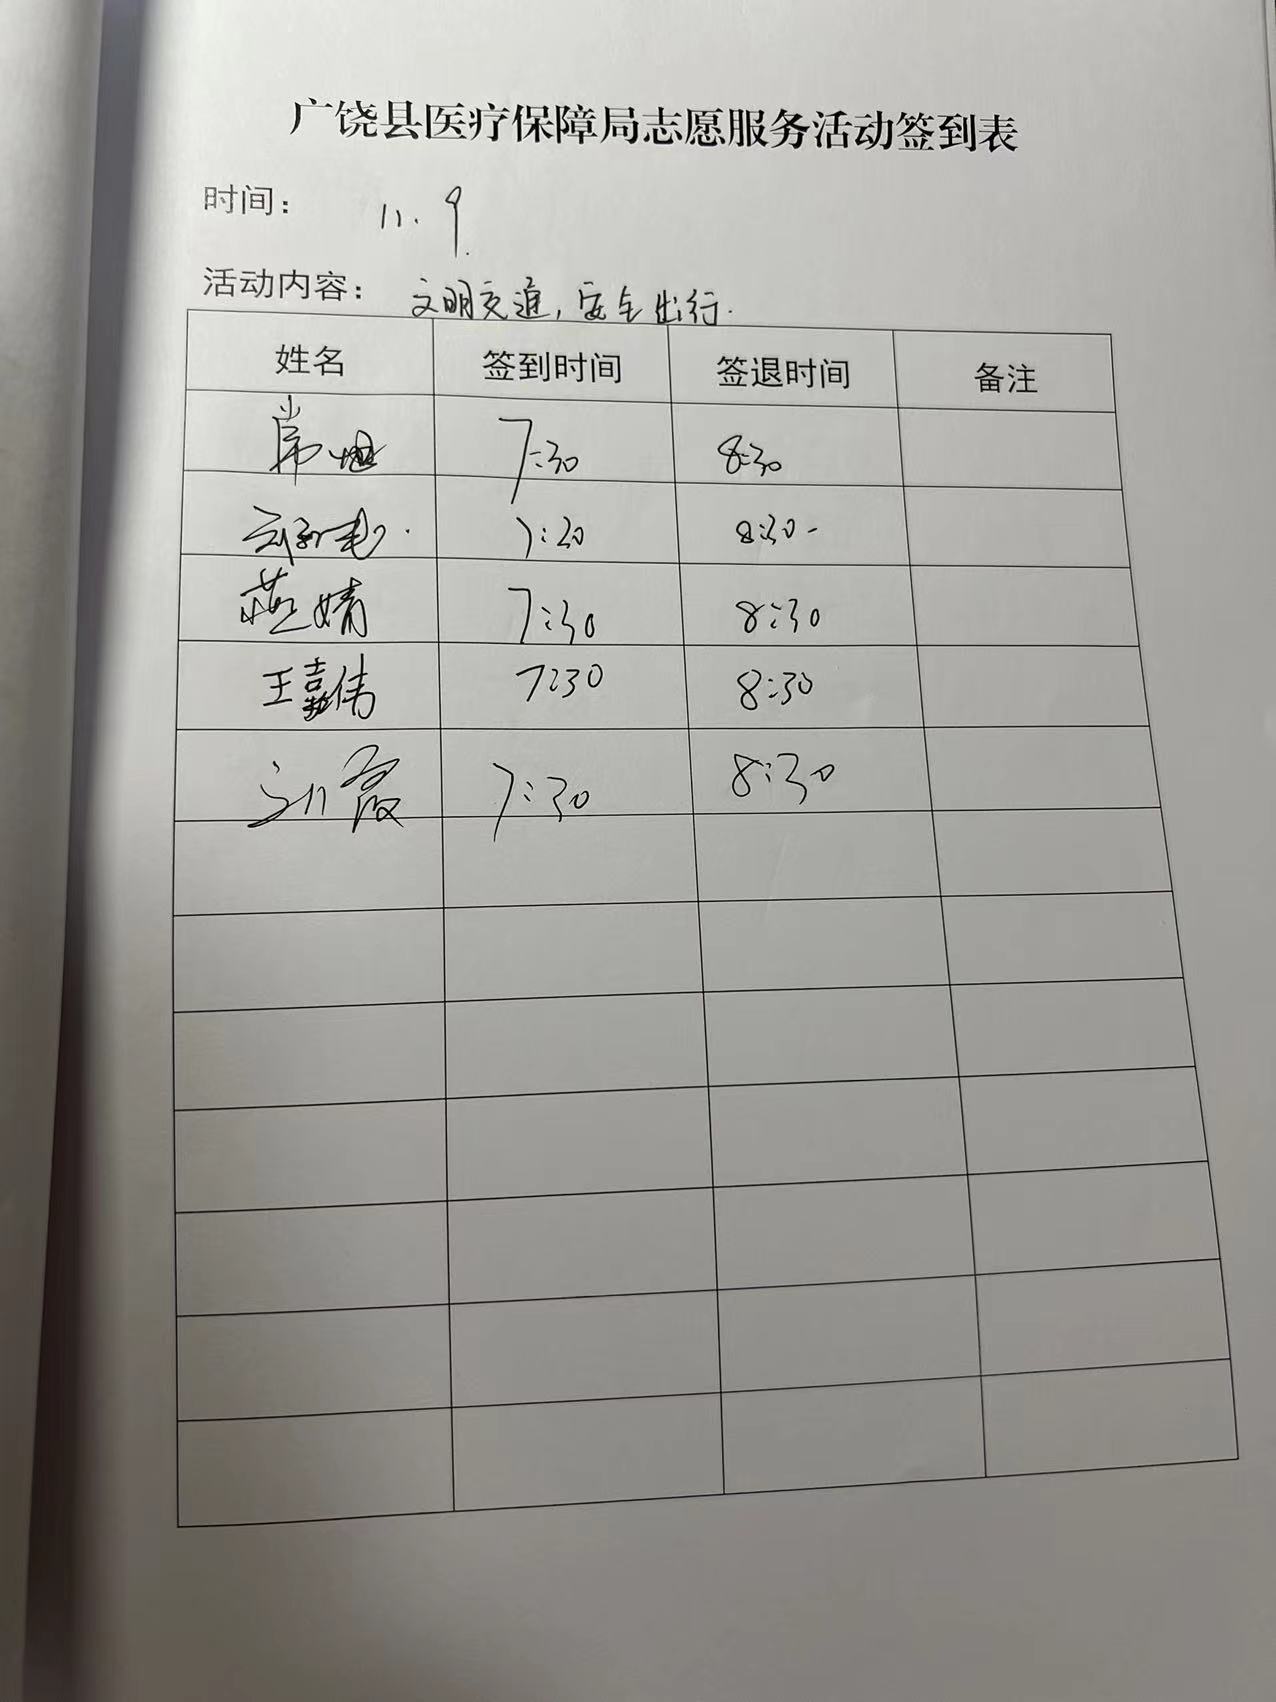 广饶县医疗保障局志愿服务活动签到表
时间： 11.9
活动内容： 文明交通,安全出行.
姓名 签到时间 签退时间 备注
常 7:30 8:30
7:30 8:30
燕婧 7:30 8:30
王嘉伟 7:30 8:30
刘霞 7:30 8:30